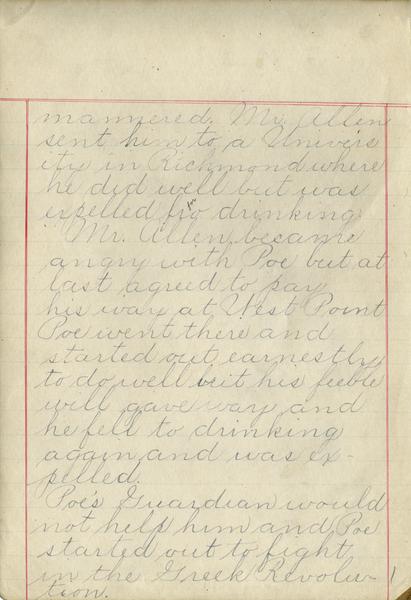 mannered. Mr. Allen
sent him to a Univers
ity in Richmond where
he did well but was
expelled fro drinking.
Mr. Allen became
angry with Poe but at
last agreed to pay
his way at West Point
Poe went there and
started out earnestly
to do well but his feeble
will gave way and
he fell to drinking
again and was ex-
pelled.
Poe's Guardian would
not help him and Poe
started out to fight
in the Greek Revolu-
tion.